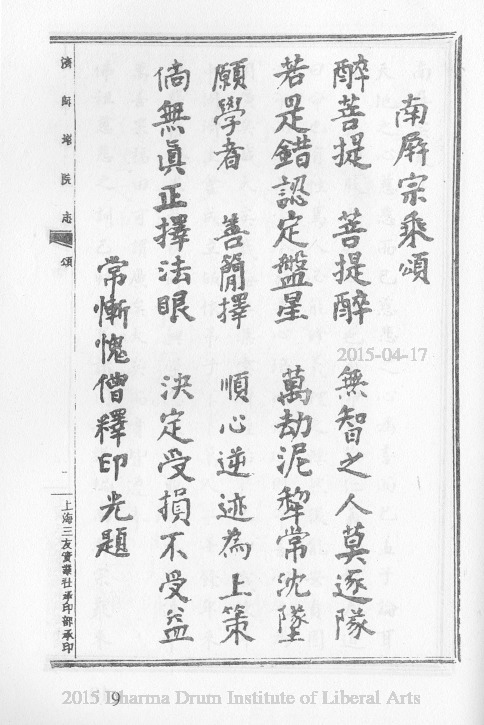 南屏宗乘頌
醉菩提　菩提醉　無智之人莫逐隊
若是錯認定盤星　萬劫泥犂常沈墜
願學者　善簡擇　順心逆迹為上策
倘無眞正擇法眼　決定受損不受益
常慚愧僧釋印光題
濟師塔院志
頌
上海三友實業社承印部承印
2015-04-17
19
2015 Dharma Drum Institute of Liberal Arts